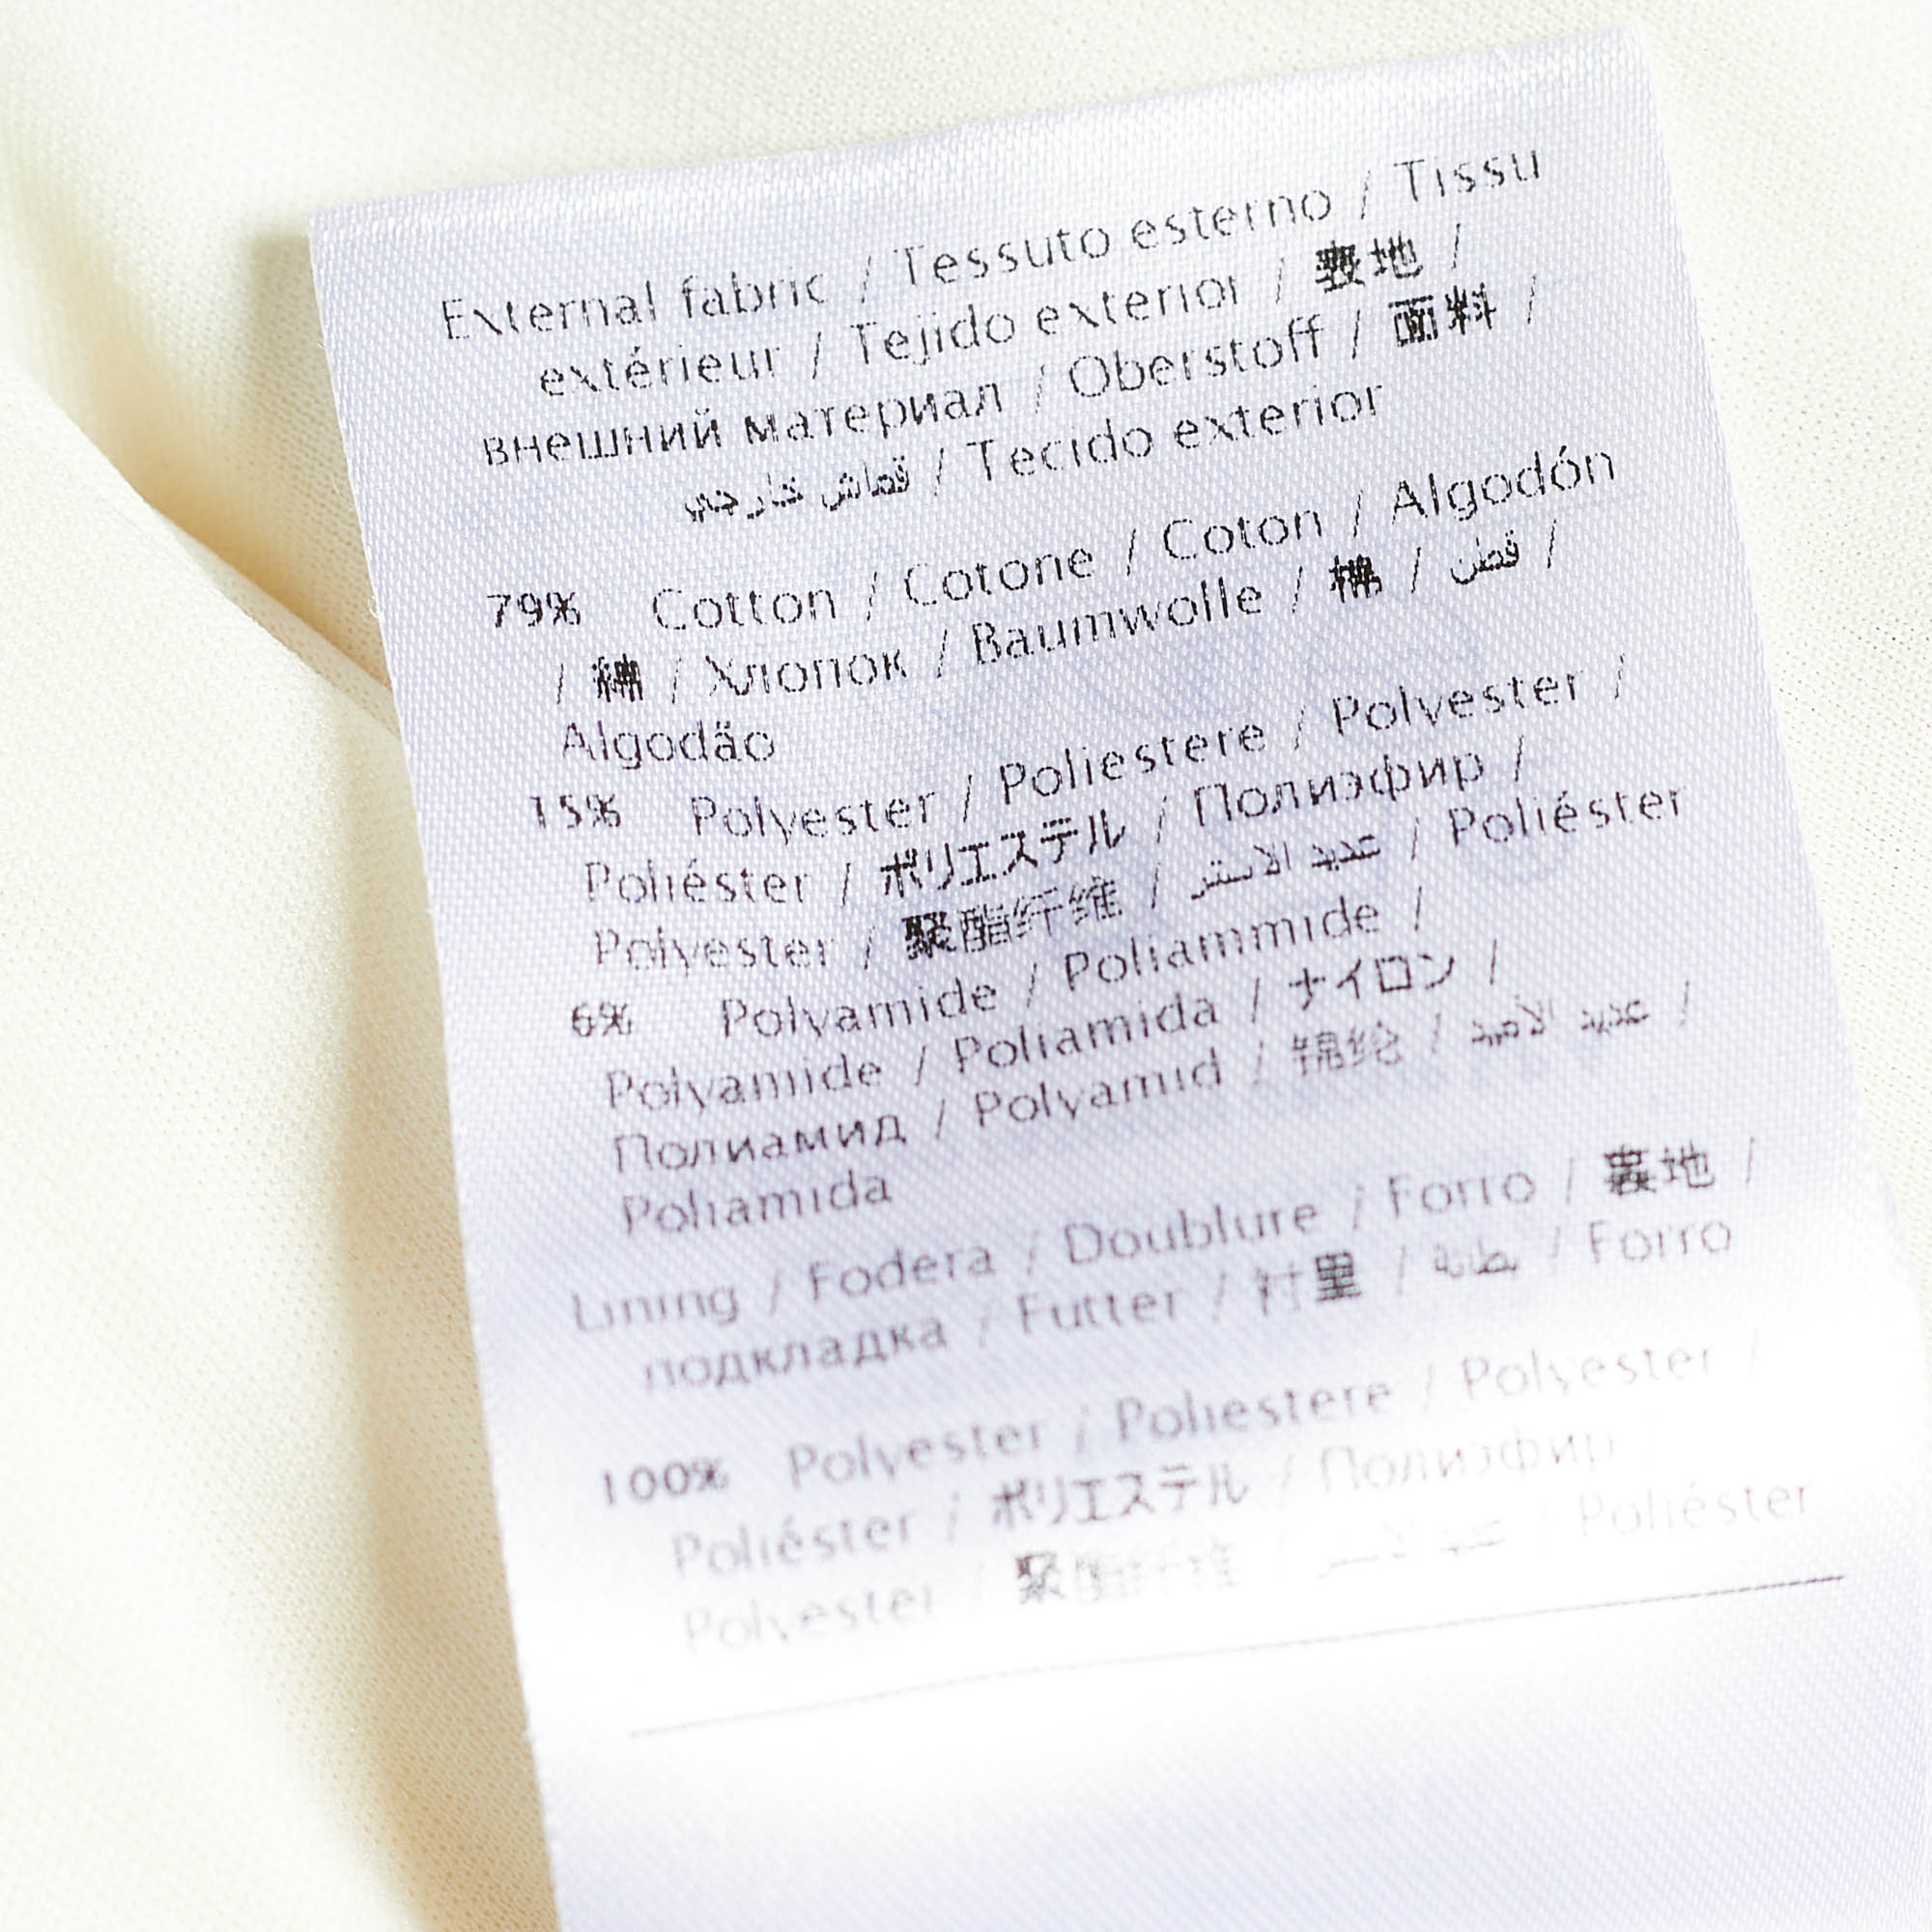 External fabric / Tessuto esterno / Tissu
extérieur / Tejido exterior / 表地 /
внешний материал / Oberstoff / 面料 /
قماش خارجي / Tecido exterior
79% Cotton / Cotone / Coton / Algodón
/ 綿 / Хлопок / Baumwolle / 棉 / قطن /
Algodão
15% Polyester / Poliestere / Polyester /
Poliéster / ポリエステル / Полиэфир /
Polyester / 聚酯纤维 / عديد الاستر / Poliéster
6% Polyamide / Poliammide /
Polyamide / Poliamida / ナイロン /
Полиамид / Polyamid / 锦纶 / عديد الأميد /
Poliamida
Lining / Fodera / Doublure / Forro / 裏地 /
подкладка / Futter / 衬里 / بطانة / Forro
100% Polyester / Poliestere / Polyester /
Poliéster / ポリエステル / Полиэфир /
Polyester / 聚酯纤维 / عديد الاستر / Poliéster